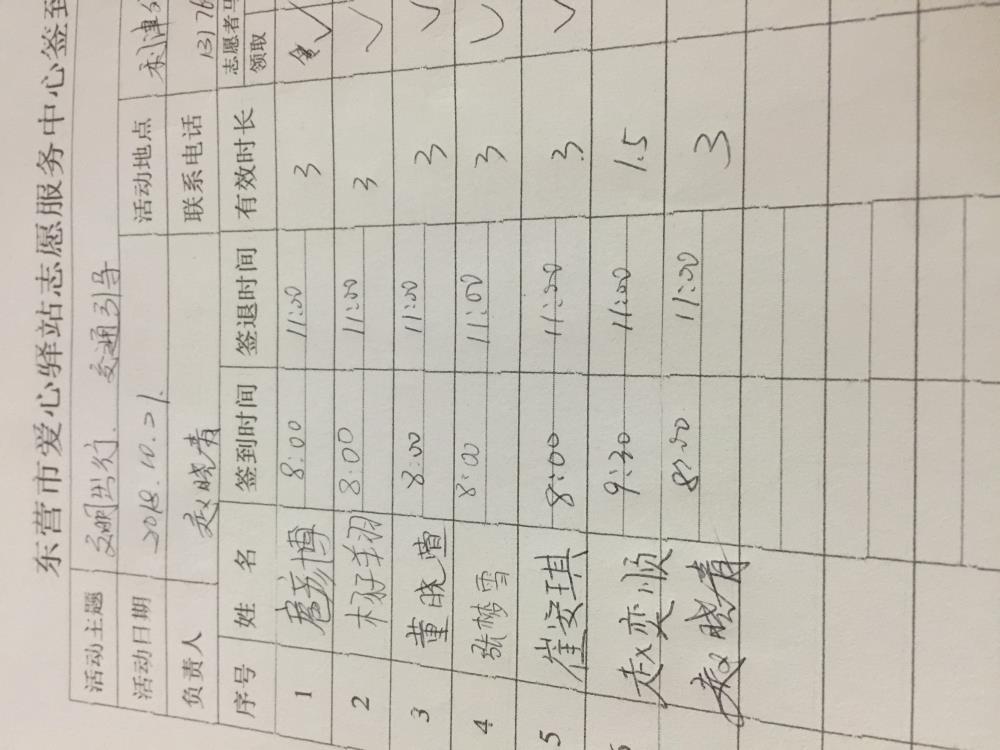 东营市爱心驿站志愿服务中心签到
活动主题 文明出行、交通引导
活动日期 2018.10.21. 活动地点 利津
负责人 赵晓青 联系电话 1376
序号 姓名 签到时间 签退时间 有效时长 志愿者 领取
1 8:00 11:00 3 ✓
2 8:00 11:00 3 ✓
3 董晓蕾 8:00 11:00 3 ✓
4 张梦雪 8:00 11:00 3 ✓
5 崔安琪 8:00 11:00 3 ✓
赵奕顺 9:30 11:00 1.5
赵晓青 8:00 11:00 3